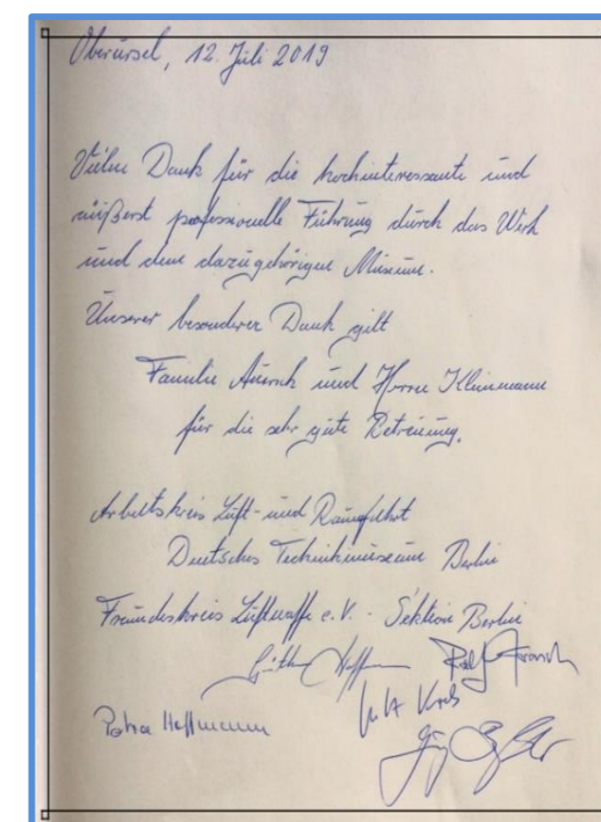 Oberursel, 12. Juli 2019
Vielen Dank für die hochinteressante und
äußerst professionelle Führung durch das Werk
und dem dazugehörigen Museum.
Unserer besonderer Dank gilt
Familie und Herrn Kleinmann
für die sehr gute Betreuung.
Arbeitskreis Luft- und Raumfahrt
Deutsches Technikmuseum Berlin
Freundeskreis Luftwaffe e.V. - Sektion Berlin
Petra Hoffmann